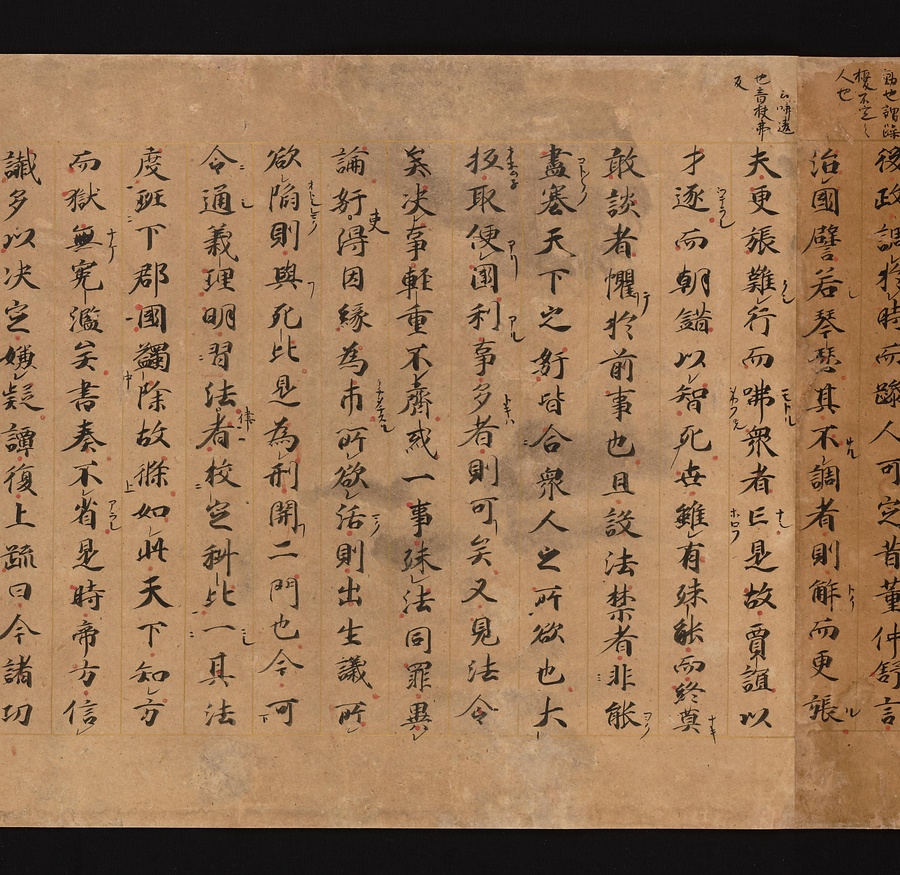 擾不定之
人也
咈違
也音扶弗
反
後政調於時而躁人可定昔董仲舒言
治國譬若琴瑟其不調者則解而更張
夫更張難行而咈衆者亡是故賈誼以
才逐而朝錯以智死世雖有殊能而終莫
敢談者懼於前事也且設法禁者非能
盡塞天下之姧皆合衆人之所欲也大
抵取便國利事多者則可矣又見法令
矣决事軽重不齊或一事殊法同罪異
論姧吏得因緣為市所欲活則出生議所
欲陷則與死比是為刑開二門也今可
令通義理明習法律者校定科比一其法
度班下郡國蠲除故條如此天下知方
而獄無寃濫矣書奏不省是時帝方信
讖多以决定嫌疑譚復上疏曰今諸巧